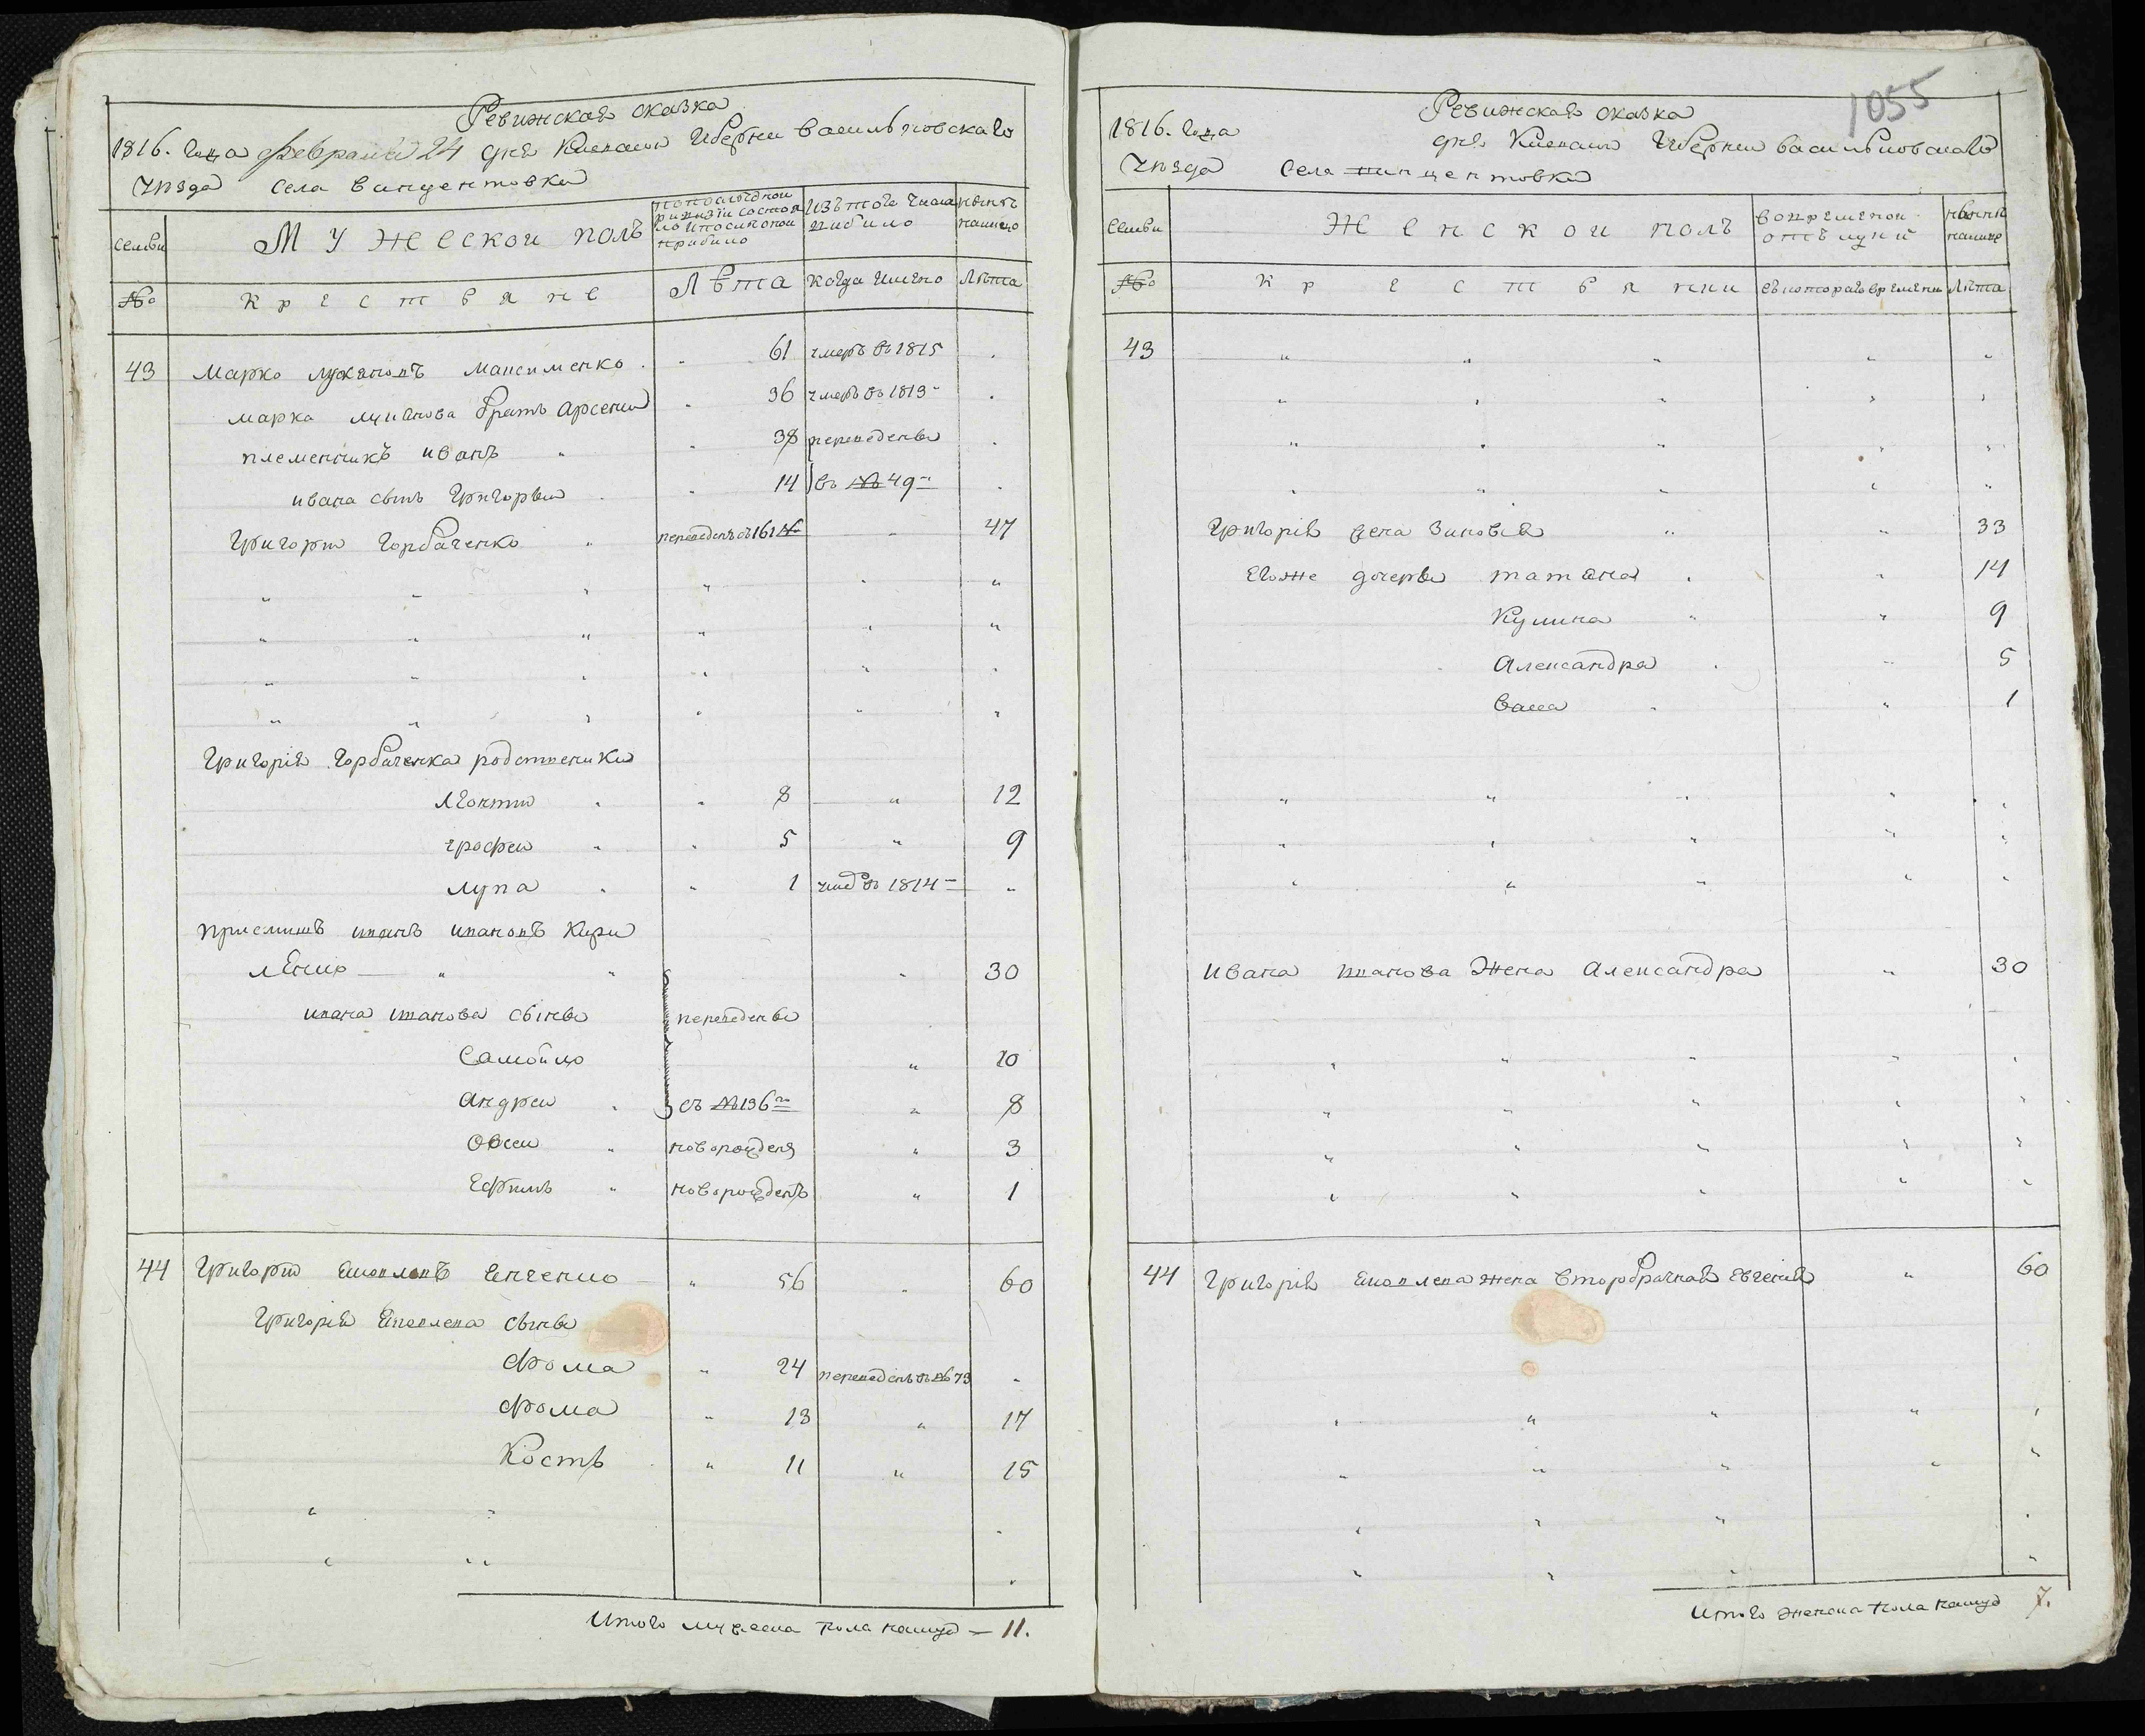 Ревижская сказка
1816. Года февраля 24 дня Киевской Губернии васильковскаго
уезда села винцентовки
семьи
Мужеской полъ
по последной ревизіи состояло и после оной прибыло
изъ того числа выбыло
ныне налицо
№
крестьяне
Лѣта
когда имено
Лѣта
43 Марко лукяновъ Максименко 61 умеръ въ 1815
марка лукянова братъ Арсени 36 умеръ въ 1813
племенникъ иванъ 38 переведены
ивана сынъ Григорыи 14 въ № 49
Григори Горбаченко переведенъ съ 161 № 47
Григорія Горбаченка родственики
Леонти 8 12
ерофеи 5 9
лупа 1 умер въ 1814
приемышъ иванъ ивановъ Кири
ленко 30
ивана иванова сыны переведены
Самойло 10
Андреи съ № 136 8
Овсеи новорожденъ 3
Ефимъ новорожденъ 1
44 Григори 56 60
Григорія сыны
Фома 24 переведенъ въ № 73
Фома 13 17
Кость 11 15
Итого мужеска пола налицо — 11.
1055
Ревижская сказка
1816. Года дня Киевской Губернии васильковскаго
уезда Села винцентовки
семьи
Женской полъ
во временой отлучки
ныне налице
№
крестьянки
съ котораго времени
Лѣта
43
Григорія жена Зиновія 33
Егоже дочеры татяна 14
Кулина 9
Александра 5
васса 1
ивана иванова Жена Александра 30
44 Григорія жена второбрачная Евгенія 60
Итого женска пола налицо 7.